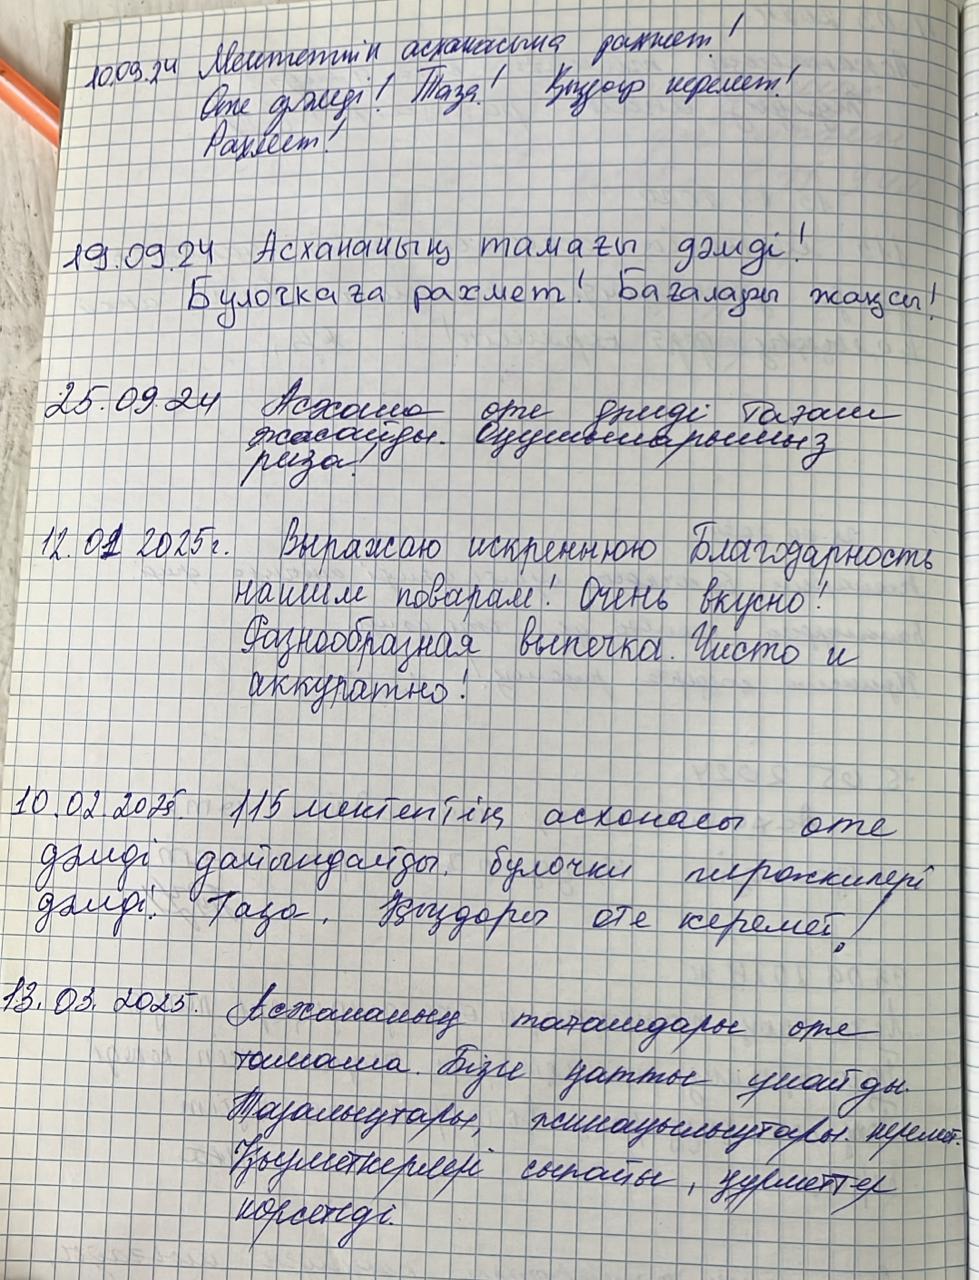 10.09.24 Мектептің асханасына рахмет!
Өте дәмді! Таза! Қыздар керемет!
Рахмет!
19.09.24 Асхананың тамағы дәмді!
Булочкаға рахмет! Бағалары жақсы!
25.09.24 Асхана өте дәмді тағам
жасайды. Оқушыларымыз
риза!
12.01 2025г. Выражаю искреннюю Благодарность
нашим поварам! Очень вкусно!
Разнообразная выпечка. Чисто и
аккуратно!
10.02.2025. 115 мектептің асханасы өте
дәмді дайындайды. булочки пирожкилері
дәмді. Таза. Қыздары өте керемет!
13.03.2025. Асхананың тағамдары өте
тамаша. Бізге қатты ұнайды.
Тазалықтары, жинақылықтары керемет.
Қызметкерлері сыпайы, құрметтер
көрсетеді.